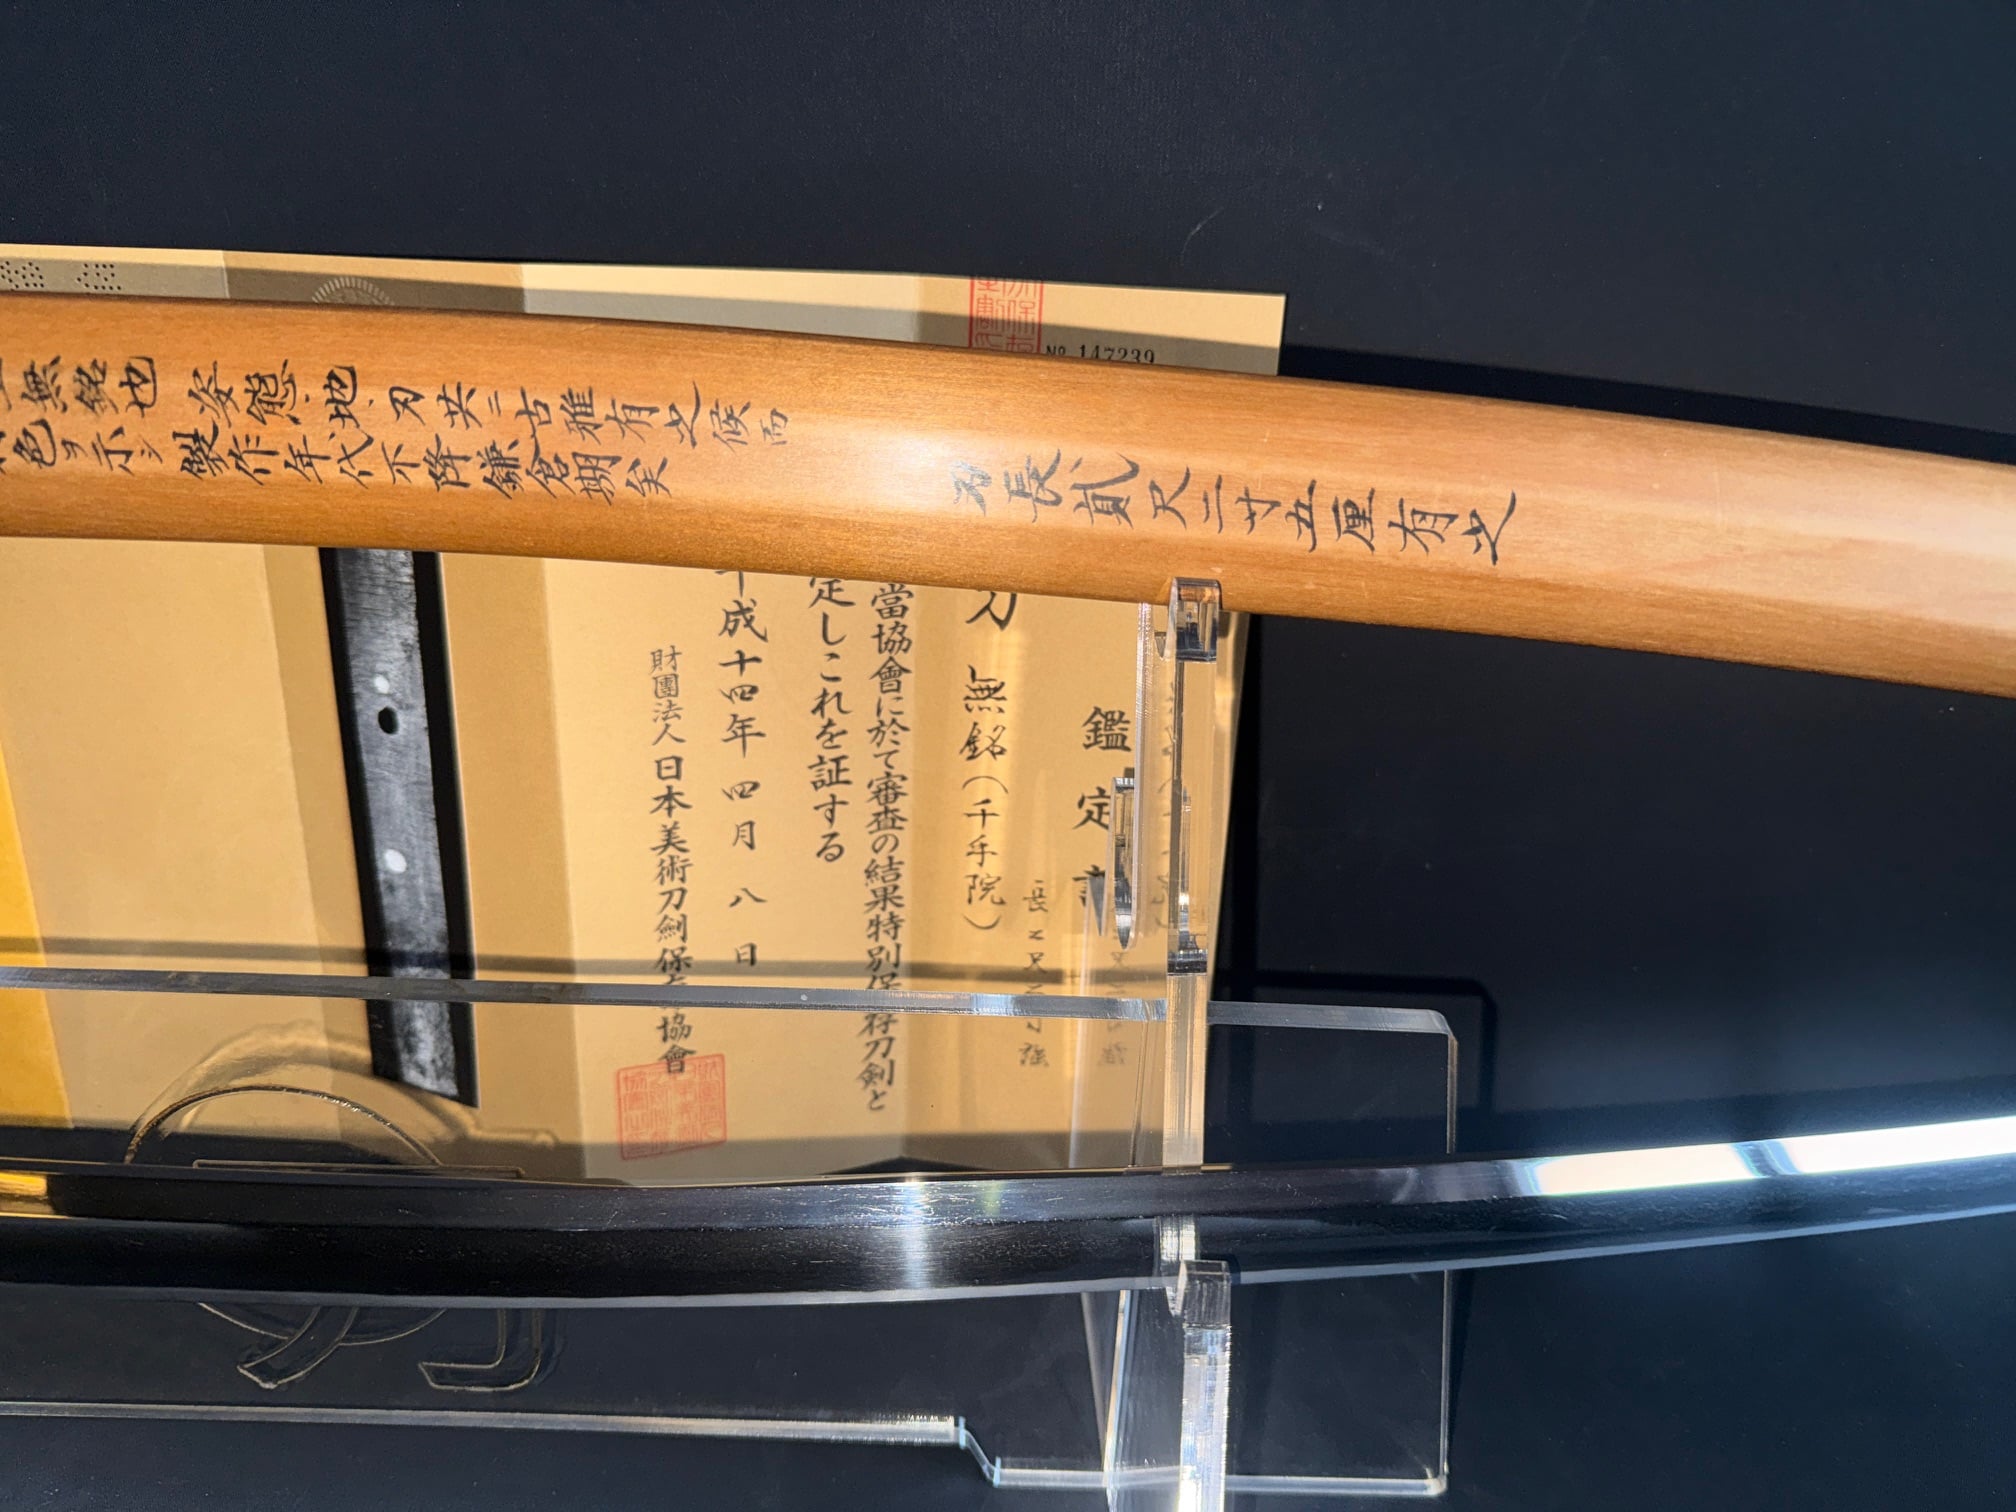 無銘也 姿態地刃共ニ古雅有之候而
色ヲ示シ製作年代不降鎌倉期矣
刃長貳尺二寸五厘有之
№ 147239
鑑定
長二尺
刀 無銘（千手院）
當協會に於て審査の結果特別保存刀剣と
定しこれを証する
成十四年四月八日
財團法人日本美術刀剣保 協會